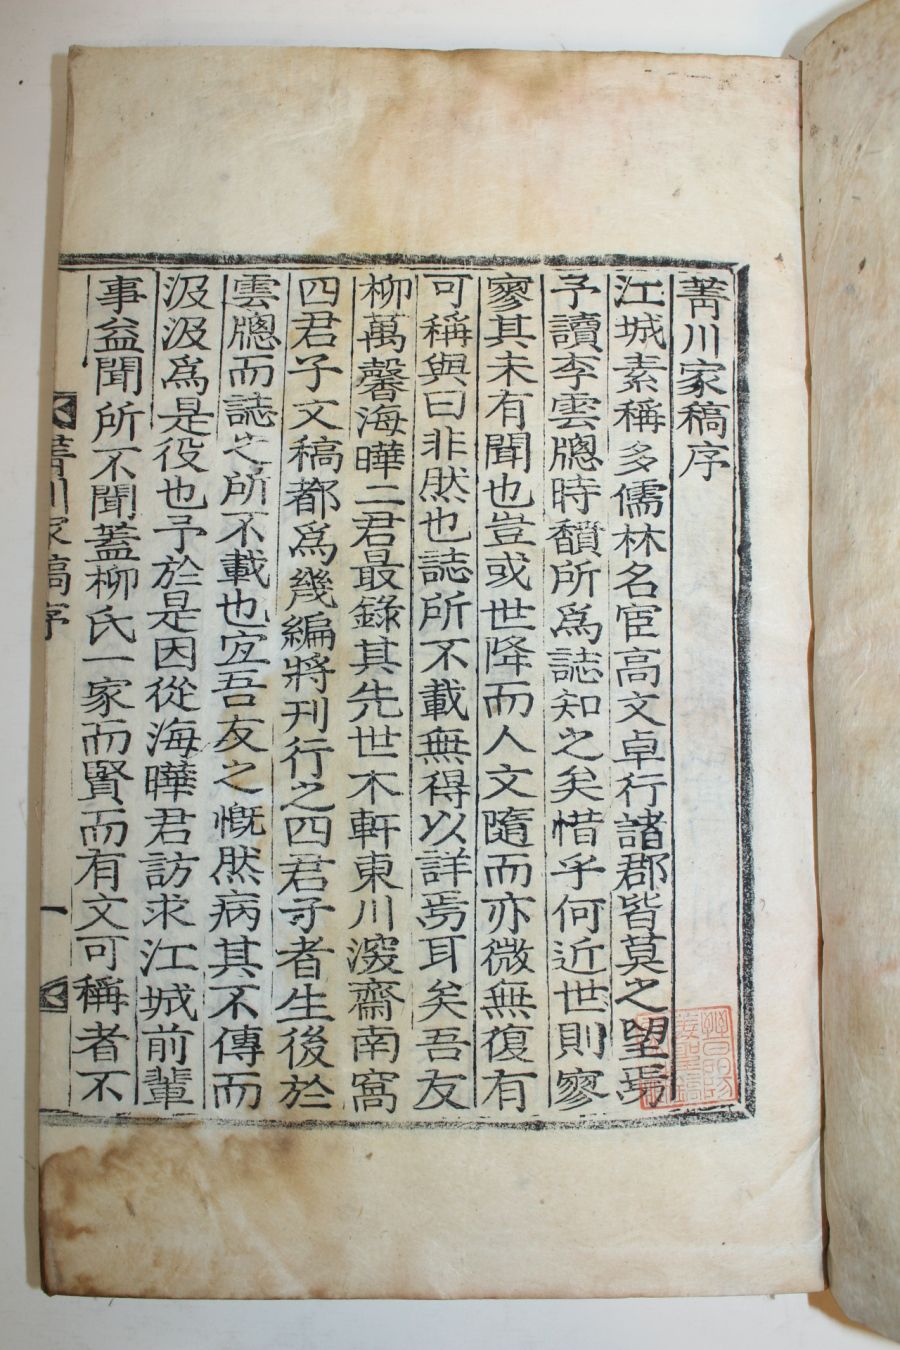 菁川家稿序
江城素稱多儒林名宦高文卓行諸郡皆莫之望焉
予讀李雲牕時馩所爲誌知之矣惜乎何近世則寥
寥其未有聞也豈或世降而人文隨而亦微無復有
可稱與曰非然也誌所不載無得以詳焉耳矣吾友
柳萬馨海曄二君最錄其先世木軒東川澀齋南窩
四君子文稿都爲幾編將刊行之四君子者生後於
雲牕而誌之所不載也宜吾友之慨然病其不傳而
汲汲爲是役也予於是因從海曄君訪求江城前輩
事益聞所不聞蓋柳氏一家而賢而有文可稱者不
菁川家稿序
一